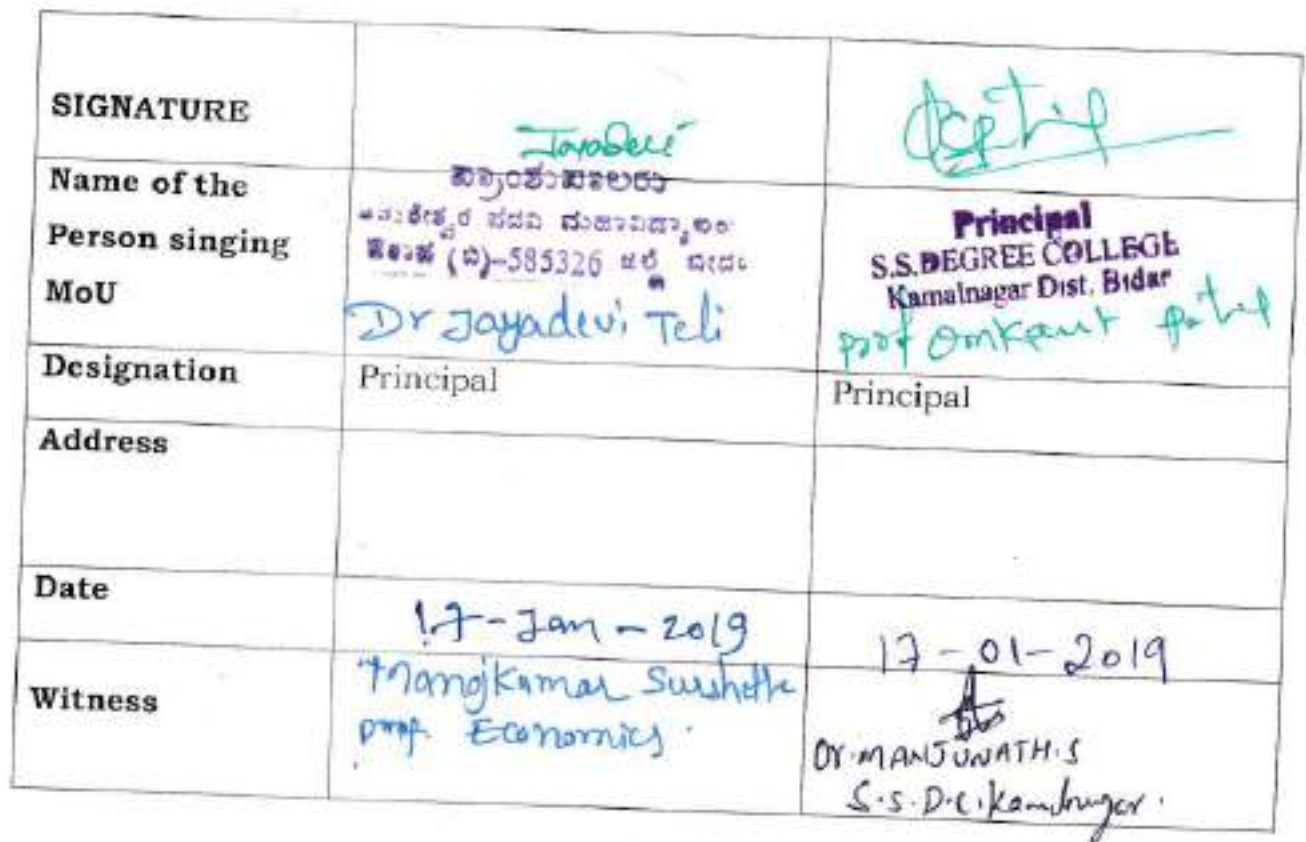 SIGNATURE
Jayadevi
Name of the
Person singing
MoU
ಪ್ರಾಂಶುಪಾಲರು
ಪದವಿ ಮಹಾವಿದ್ಯಾಲಯ
(ಬಿ)-585326 ಜಿಲ್ಲೆ ಬೀದರ
Dr Jayadevi Teli
Principal
S.S.DEGREE COLLEGE
Kamalnagar Dist. Bidar
prof Omkant patil
Designation
Principal
Principal
Address
Date
17-Jan-2019
17-01-2019
Witness
Manojkumar Surshette
prof. Economics.
Dr. MANJUNATH.S
S.S.D.C. Kamalnagar.